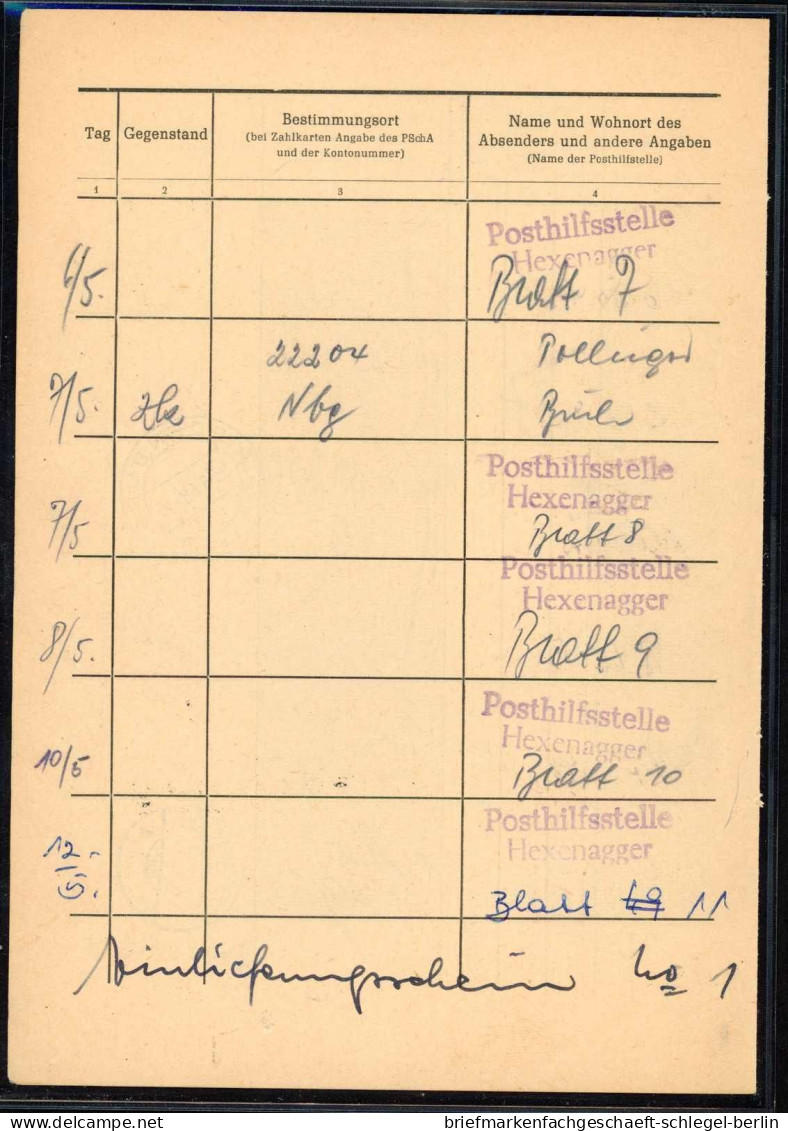 Tag
Gegenstand
Bestimmungsort
(bei Zahlkarten Angabe des PSchA
und der Kontonummer)
Name und Wohnort des
Absenders und andere Angaben
(Name der Posthilfstelle)
1
2
3
4
Posthilfsstelle
Hexenagger
6/5.
Blatt 7
22204
7/5.
Nbg
Posthilfsstelle
Hexenagger
7/5
Blatt 8
Posthilfsstelle
Hexenagger
8/5.
Blatt 9
Posthilfsstelle
Hexenagger
10/5
Blatt 10
Posthilfsstelle
Hexenagger
12.
5.
Blatt 11
Einlieferungsschein No 1
delcampe.net
briefmarkenfachgeschaeft-schlegel-berlin